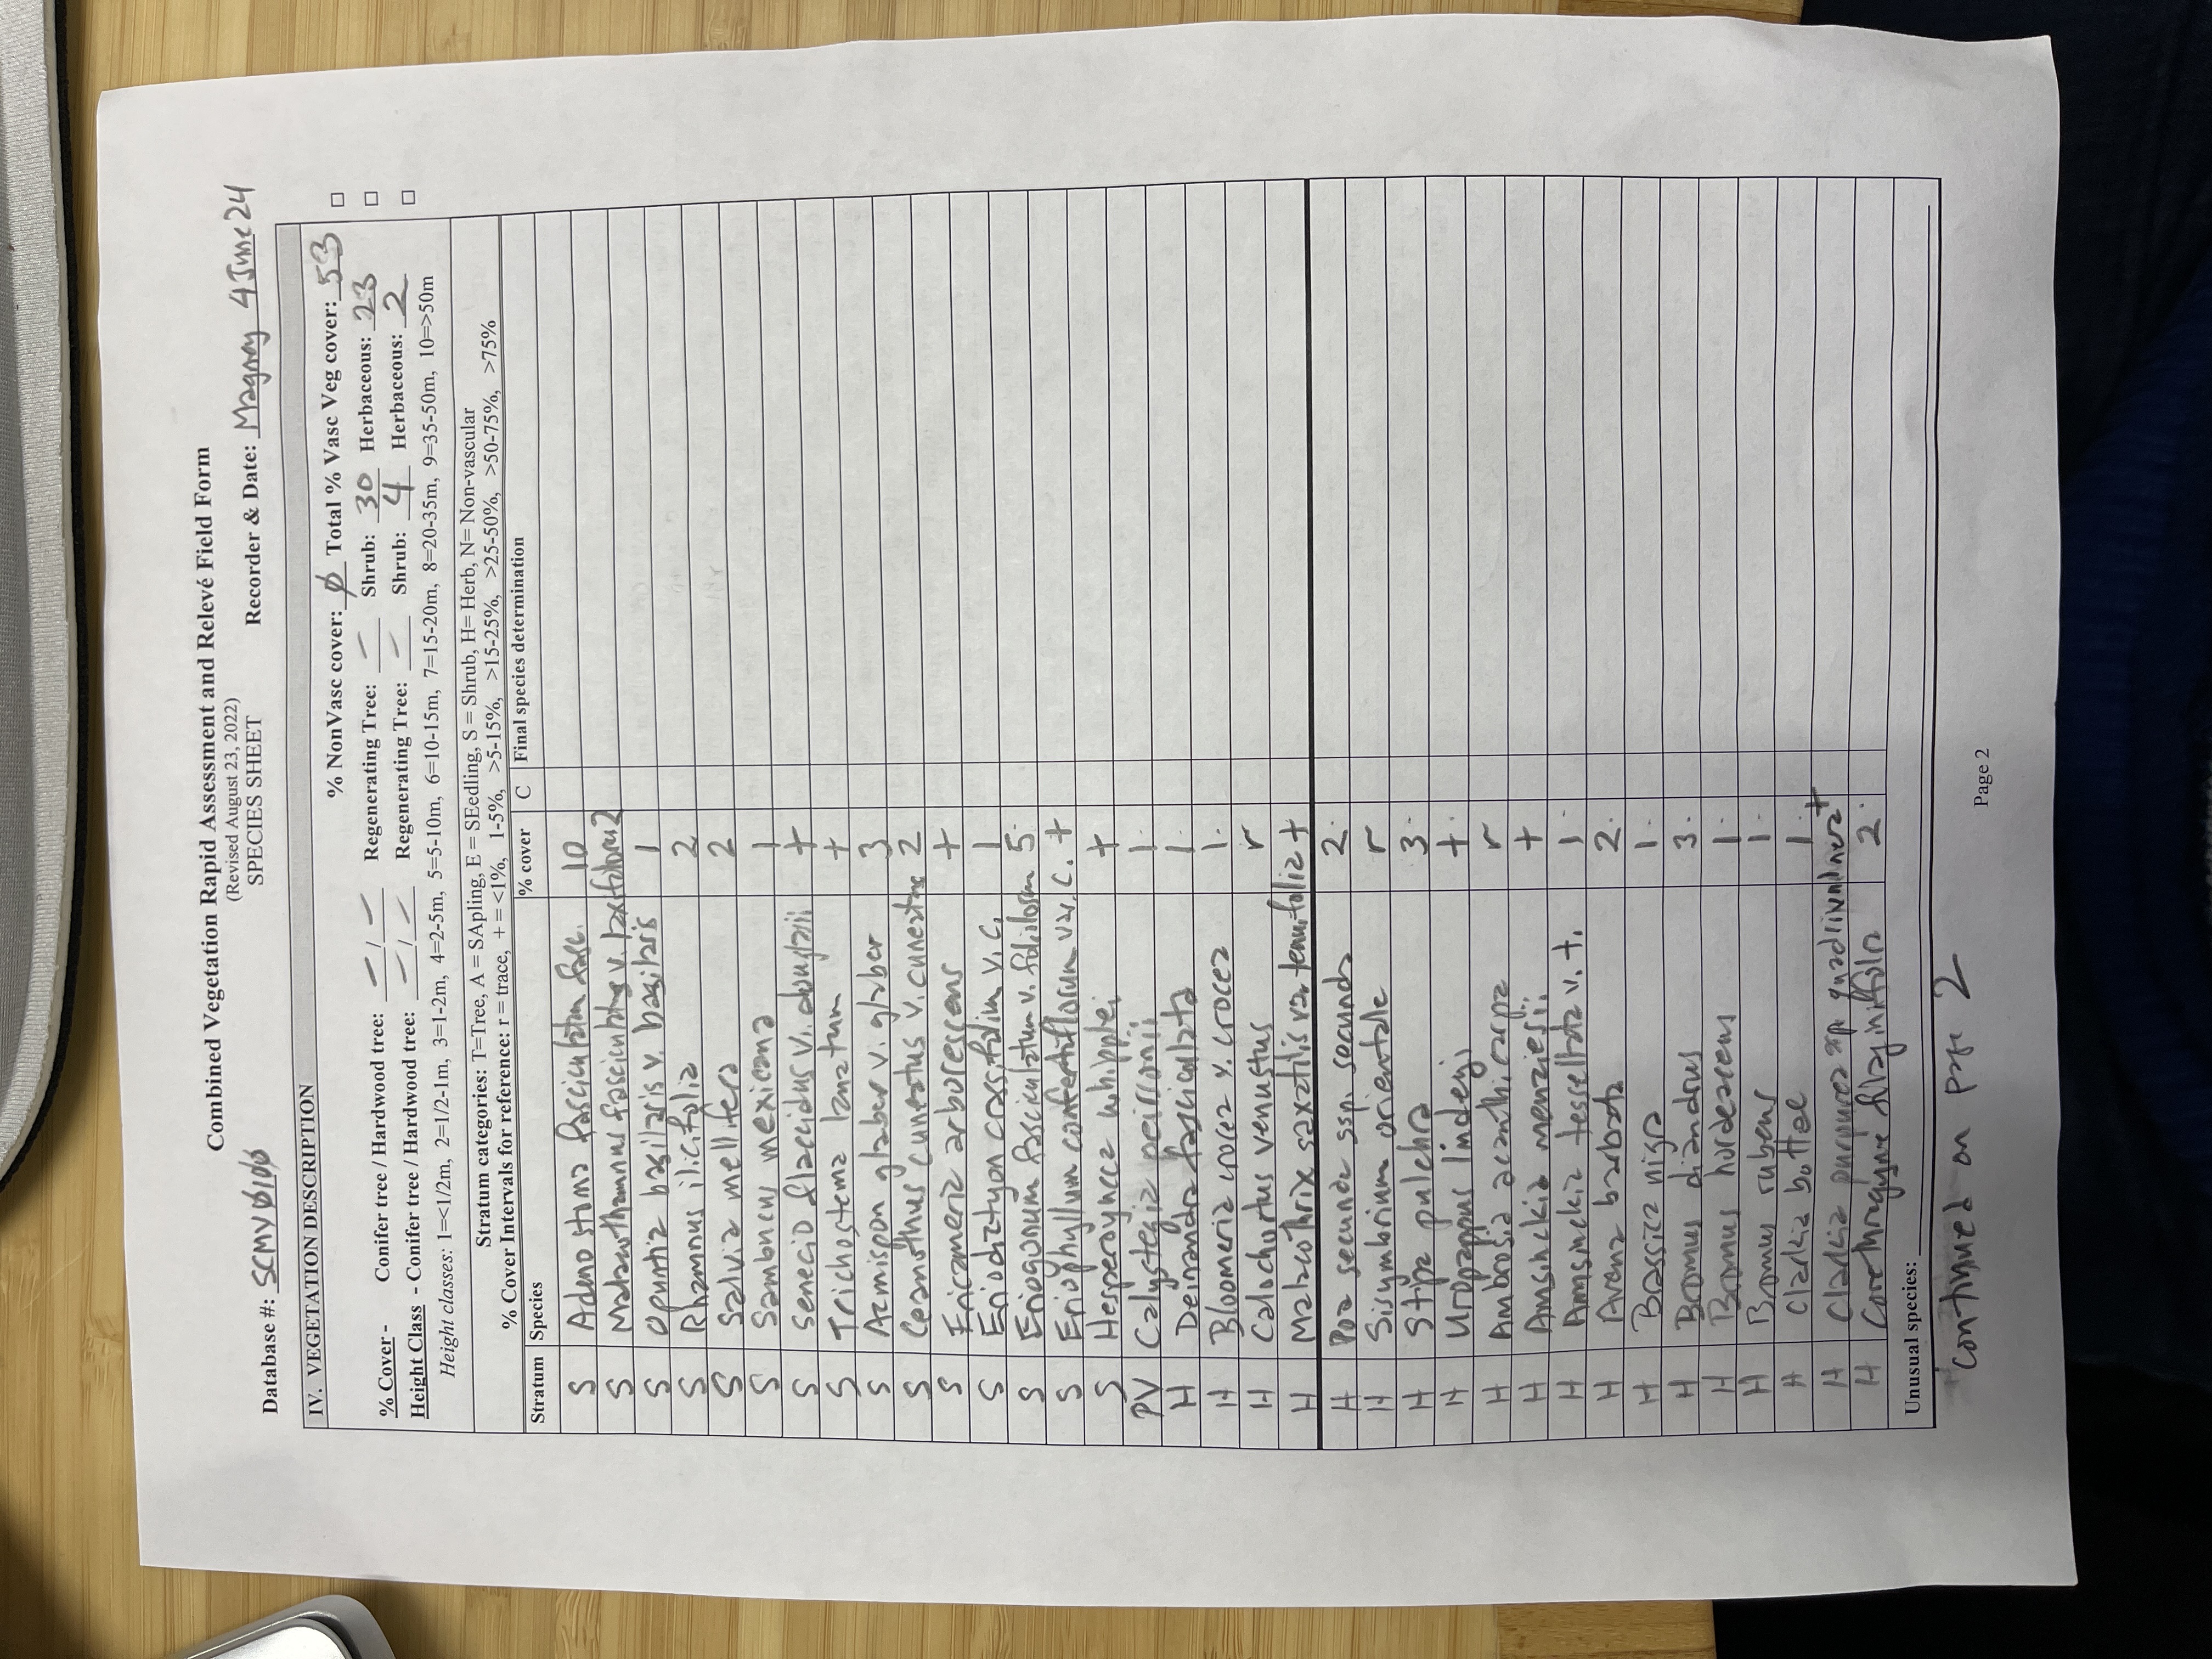 Combined Vegetation Rapid Assessment and Relevé Field Form
(Revised August 23, 2022)
SPECIES SHEET
Database #: SCMVØ1ØØ Recorder & Date: Magney 4 June 24
IV. VEGETATION DESCRIPTION
% NonVasc cover: Ø Total % Vasc Veg cover: 53 □
% Cover - Conifer tree / Hardwood tree: – / – Regenerating Tree: – Shrub: 30 Herbaceous: 23 □
Height Class - Conifer tree / Hardwood tree: – / – Regenerating Tree: – Shrub: 4 Herbaceous: 2 □
Height classes: 1=<1/2m, 2=1/2-1m, 3=1-2m, 4=2-5m, 5=5-10m, 6=10-15m, 7=15-20m, 8=20-35m, 9=35-50m, 10=>50m
Stratum categories: T=Tree, A = SApling, E = SEedling, S = Shrub, H= Herb, N= Non-vascular
% Cover Intervals for reference: r = trace, + = <1%, 1-5%, >5-15%, >15-25%, >25-50%, >50-75%, >75%
Stratum Species % cover C Final species determination
S Adenostoma fasciculatum fasc. 10
S Malacothamnus fasciculatus v. 2
S Opuntia basilaris v. basilaris 1
S Rhamnus ilicifolia 2
S Salvia mellifera 2
S Sambucus mexicana 1
S Senecio flaccidus v. douglasii +
S Trichostema lanatum +
S Acmispon glaber v. glaber 3
S Ceanothus cuneatus v. cuneatus 2
S Ericameria arborescens +
S Eriodictyon crassifolium v. c. 1
S Eriogonum fasciculatum v. foliolosum 5.
S Eriophyllum confertiflorum var. c. +
S Hesperoyucca whipplei +
PV Calystegia peirsonii 1.
H Deinandra fasciculata 1.
H Bloomeria crocea v. crocea 1.
H Calochortus venustus r
H Malacothrix saxatilis var tenuifolia +
H Poa secunda ssp. secunda 2.
H Sisymbrium orientale r
H Stipa pulchra 3.
H Uropappus lindleyi +.
H Ambrosia acanthicarpa r
H Amsinckia menziesii +
H Amsinckia tessellata v. t. 1.
H Avena barbata 2.
H Brassica nigra 1.
H Bromus diandrus 3.
H Bromus hordeaceus 1.
H Bromus rubens 1.
H Clarkia bottae 1.
H Clarkia purpurea ssp quadrivulnera +
H Corethrogyne filaginifolia 2.
Unusual species:
continued on page 2
Page 2